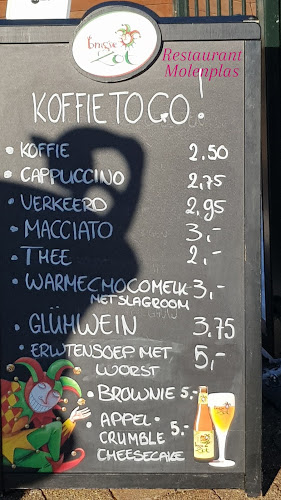 Brugse
Zot
Restaurant
Molenplas
KOFFIE TO GO!
• KOFFIE 2,50
• CAPPUCCINO 2,75
• VERKEERD 2,95
• MACCIATO 3,-
• THEE 2,-
• WARME CHOCOMELK 3,-
MET SLAGROOM
• GLÜHWEIN 3.75
• ERWTENSOEP MET 5,-
WORST
• BROWNIE 5,-
• APPEL • 5,-
CRUMBLE
CHEESECAKE